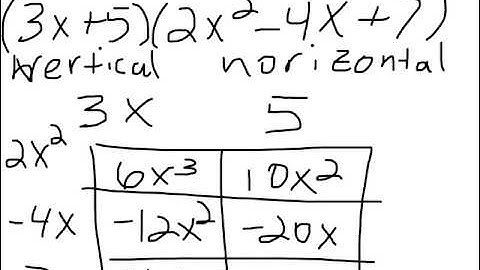 (3x+5)(2x²-4x+7)
vertical horizontal
3x 5
2x² 6x³ 10x²
-4x -12x² -20x